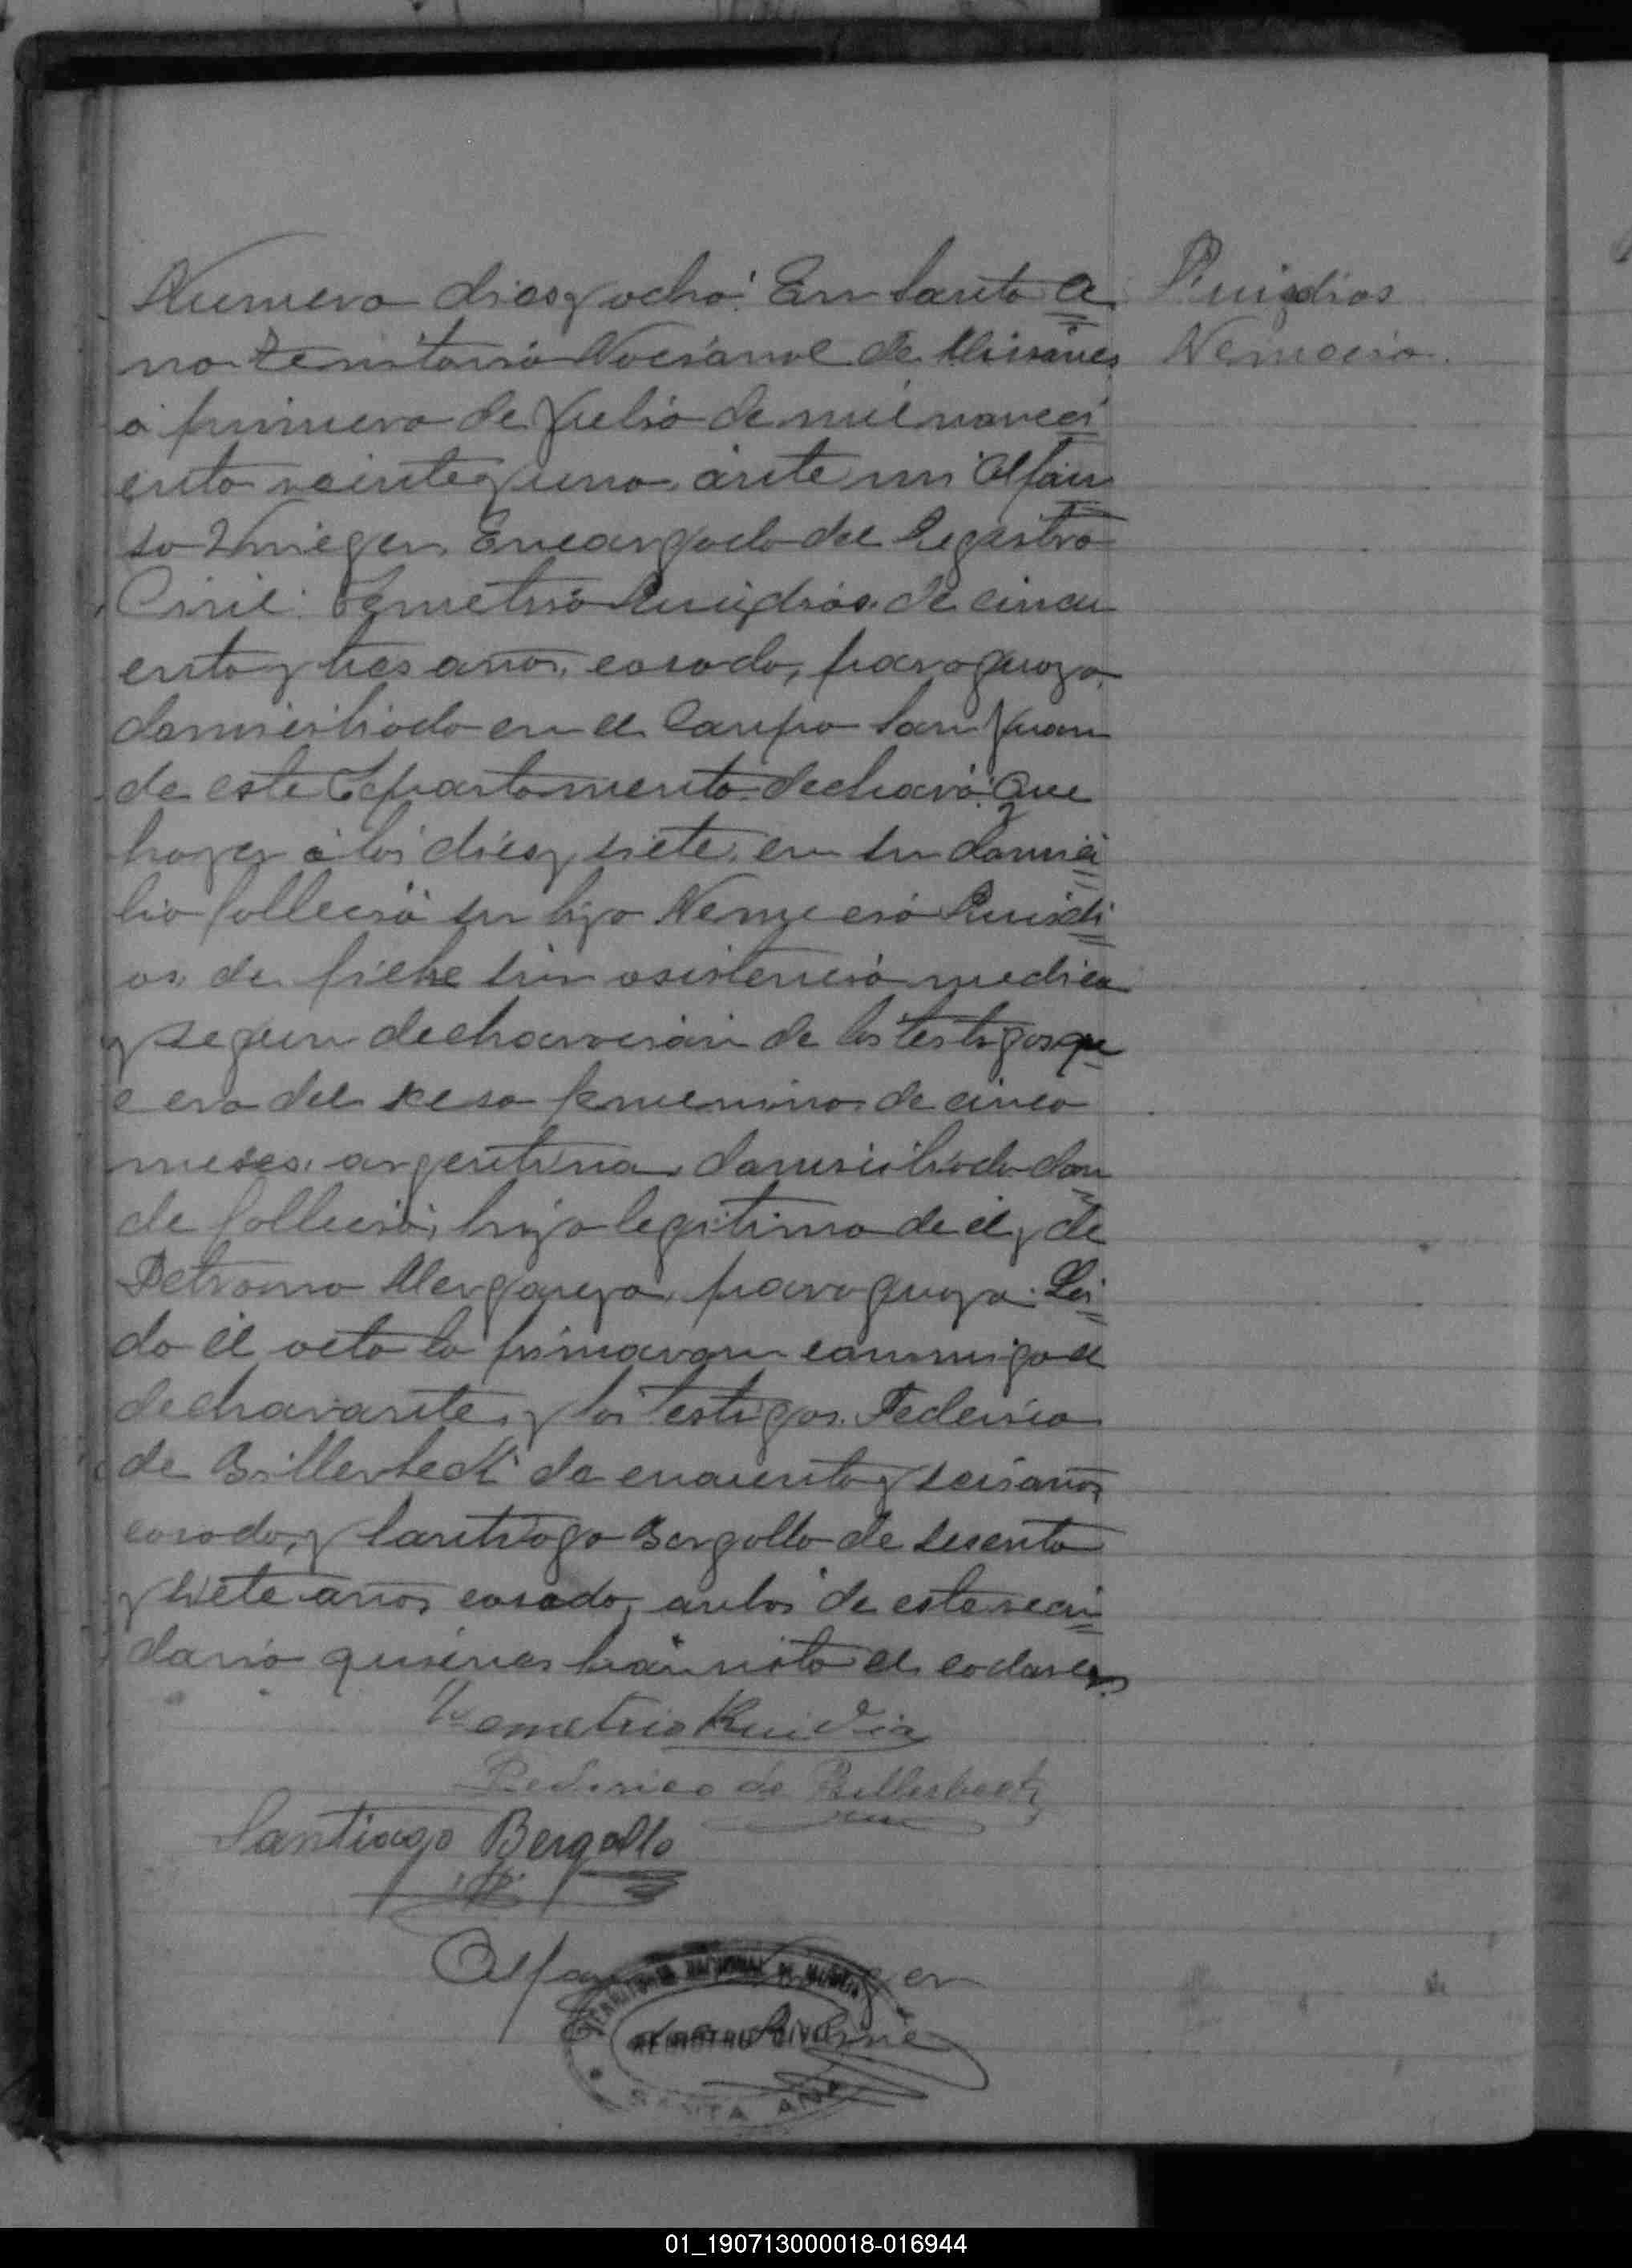 Numero dies y ocho: En Santa A
Ruisdias
na Territorio Nacional de Misiones
Nemecia.
a primero de Julio de mil noveci
ento veinte y uno, ante mi Alfon
so Encargado del Registro
Civil: Demetrio Ruisdias, de cincu
enta y tres años, casado, paraguayo,
domiciliado en el Campo San Juan
de este Departamento, declaró: Que
hoy a las dies y siete, en su domici
lio fallecio su hija Nemecia Ruisdi
as, de fiebre sin asistencia medica
y segun declaracion de los testigos qu
e era del sexo femenino, de cinco
meses, argentina, domiciliada don
de fallecio, hija legitima de el y de
Petrona paraguaya. Lei
da el acta la firmaron conmigo el
declarante, y los testigos. Federico
de Billerbeck de cuarenta y seis años
casado, y Santiago Bergallo de sesenta
y siete años casado, anbos de este veci
dario quienes han visto el cadaver.
Demetrio Ruidia
Federico de Billerbeck
Santiago Bergallo
TERRITORIO NACIONAL DE MISIONES
REGISTRO CIVIL
SANTA ANA
01_190713000018-016944